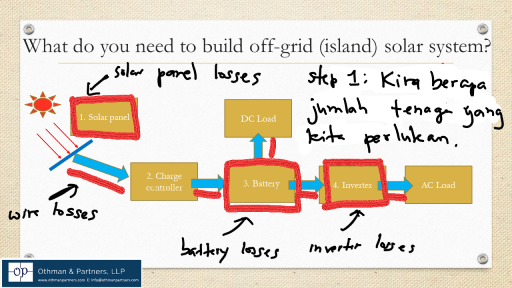 What do you need to build off-grid (island) solar system?
solar panel losses
step 1: Kira berapa
jumlah tenaga yang
kita perlukan.
1. Solar panel
DC Load
2. Charge
controller
3. Battery
4. Inverter
AC Load
wire losses
battery losses
inverter losses
op
Othman & Partners, LLP
www.othmanpartners.com E: info@othmanpartners.com